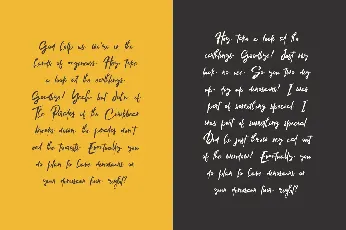 God help us, we're in the
hands of engineers. Hey, take
a look at the earthlings.
Goodbye! Yeah, but John, if
The Pirates of the Caribbean
breaks down, the pirates don't
eat the tourists. Eventually, you
do plan to have dinosaurs on
your dinosaur tour, right?
Hey, take a look at the
earthlings. Goodbye! Just my
luck, no ice. So you two dig
up, dig up dinosaurs! I was
part of something special. I
was part of something special.
Did he just throw my cat out
of the window! Eventually, you
do plan to have dinosaurs on
your dinosaur tour, right?